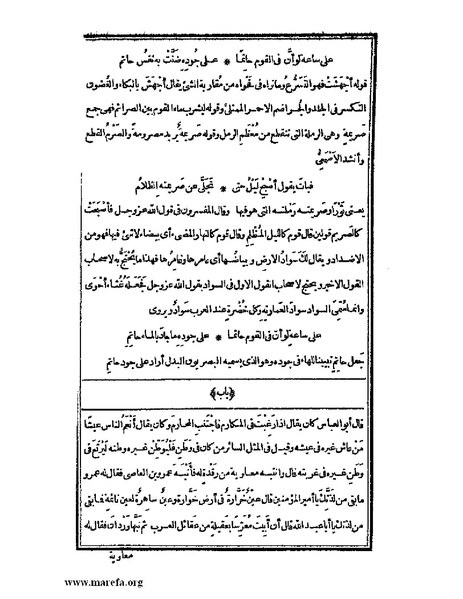 على ساعة لو أن في القوم حاتما * على جوده ضنت به نفس حاتم
قوله أجهشت فهو التسرع وما نراه في فحواه من مقاربة الشئ يقال أجهش بالبكاء والغضون
التكسر في الجلد والجراضم الاحمر الممتلئ وقوله ليشرب ماء القوم بين الصرائم فهي جمع
صريمة وهي الرملة التي تنقطع من معظم الرمل وقوله صريمة يريد مصرومة والصرم القطع
وأنشد الاصمعي
فبات يقول أصبح ليل حتى * تجلى عن صريمته الظلام
يعني ثورا وصريمته رملته التي هو فيها وقال المفسرون في قول الله عز وجل فأصبحت
كالصريم قولين قال قوم كالليل المظلم وقال قوم كالنهار المضيء أي بيضاء لا شئ فيها فهو من
الاضداد ويقال لك سواد الارض وبياضها أي عامرها وغامرها فهذا ما يحتج به لاصحاب
القول الاخير ويحتج لاصحاب القول الاول في السواد بقول الله عز وجل فجعله غثاء أحوى
وانما سمي السواد سوادا لعمارته وكل خضرة عند العرب سواد ويروى
على ساعة لو أن في القوم حاتما * على جوده ما جاد بالماء حاتم
جعل حاتم تبيينا للهاء في جوده وهو الذي يسميه البصريون البدل أراد على جود حاتم
﴿باب﴾
قال أبو العباس كان يقال اذا رغبت في المكارم فاجتنب المحارم وكان يقال أنعم الناس عيشا
من عاش غيره في عيشه وقيل في المثل السائر من كان في وطن فليوطن غيره وطنه ليرتع في
وطن غيره في غربته قال وانتبه معاوية من رقدة له فأنبه عمرو بن العاصي فقال له عمرو
ما بقي من لذتك يا أمير المؤمنين قال عين خرارة في أرض خوارة وعين ساهرة لعين نائمة فما بقي
من لذتك يا أبا عبد الله قال أن أبيت معرسا بعقيلة من عقائل العرب ثم نبها وردان فقال له
معاوية
www.marefa.org